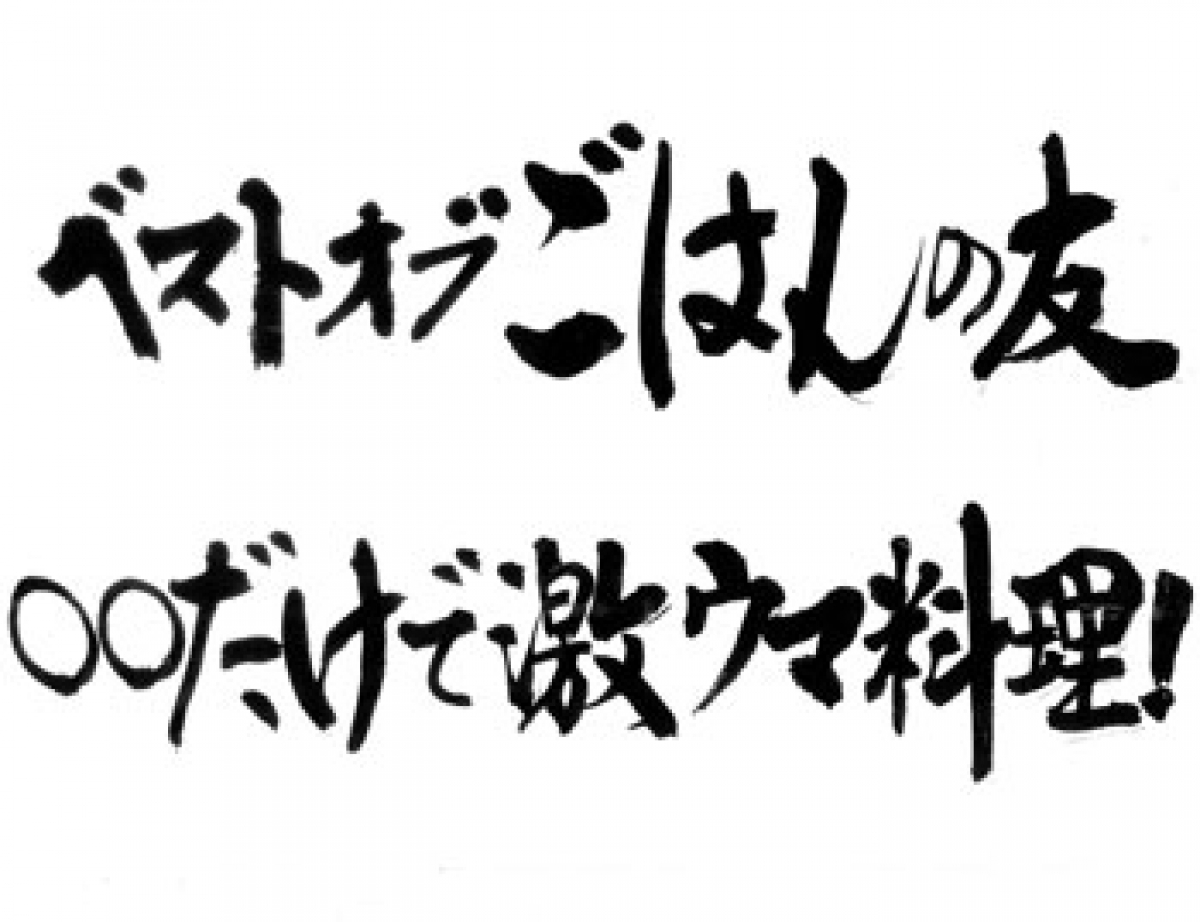 ベストオブごはんの友
○○だけで激ウマ料理!